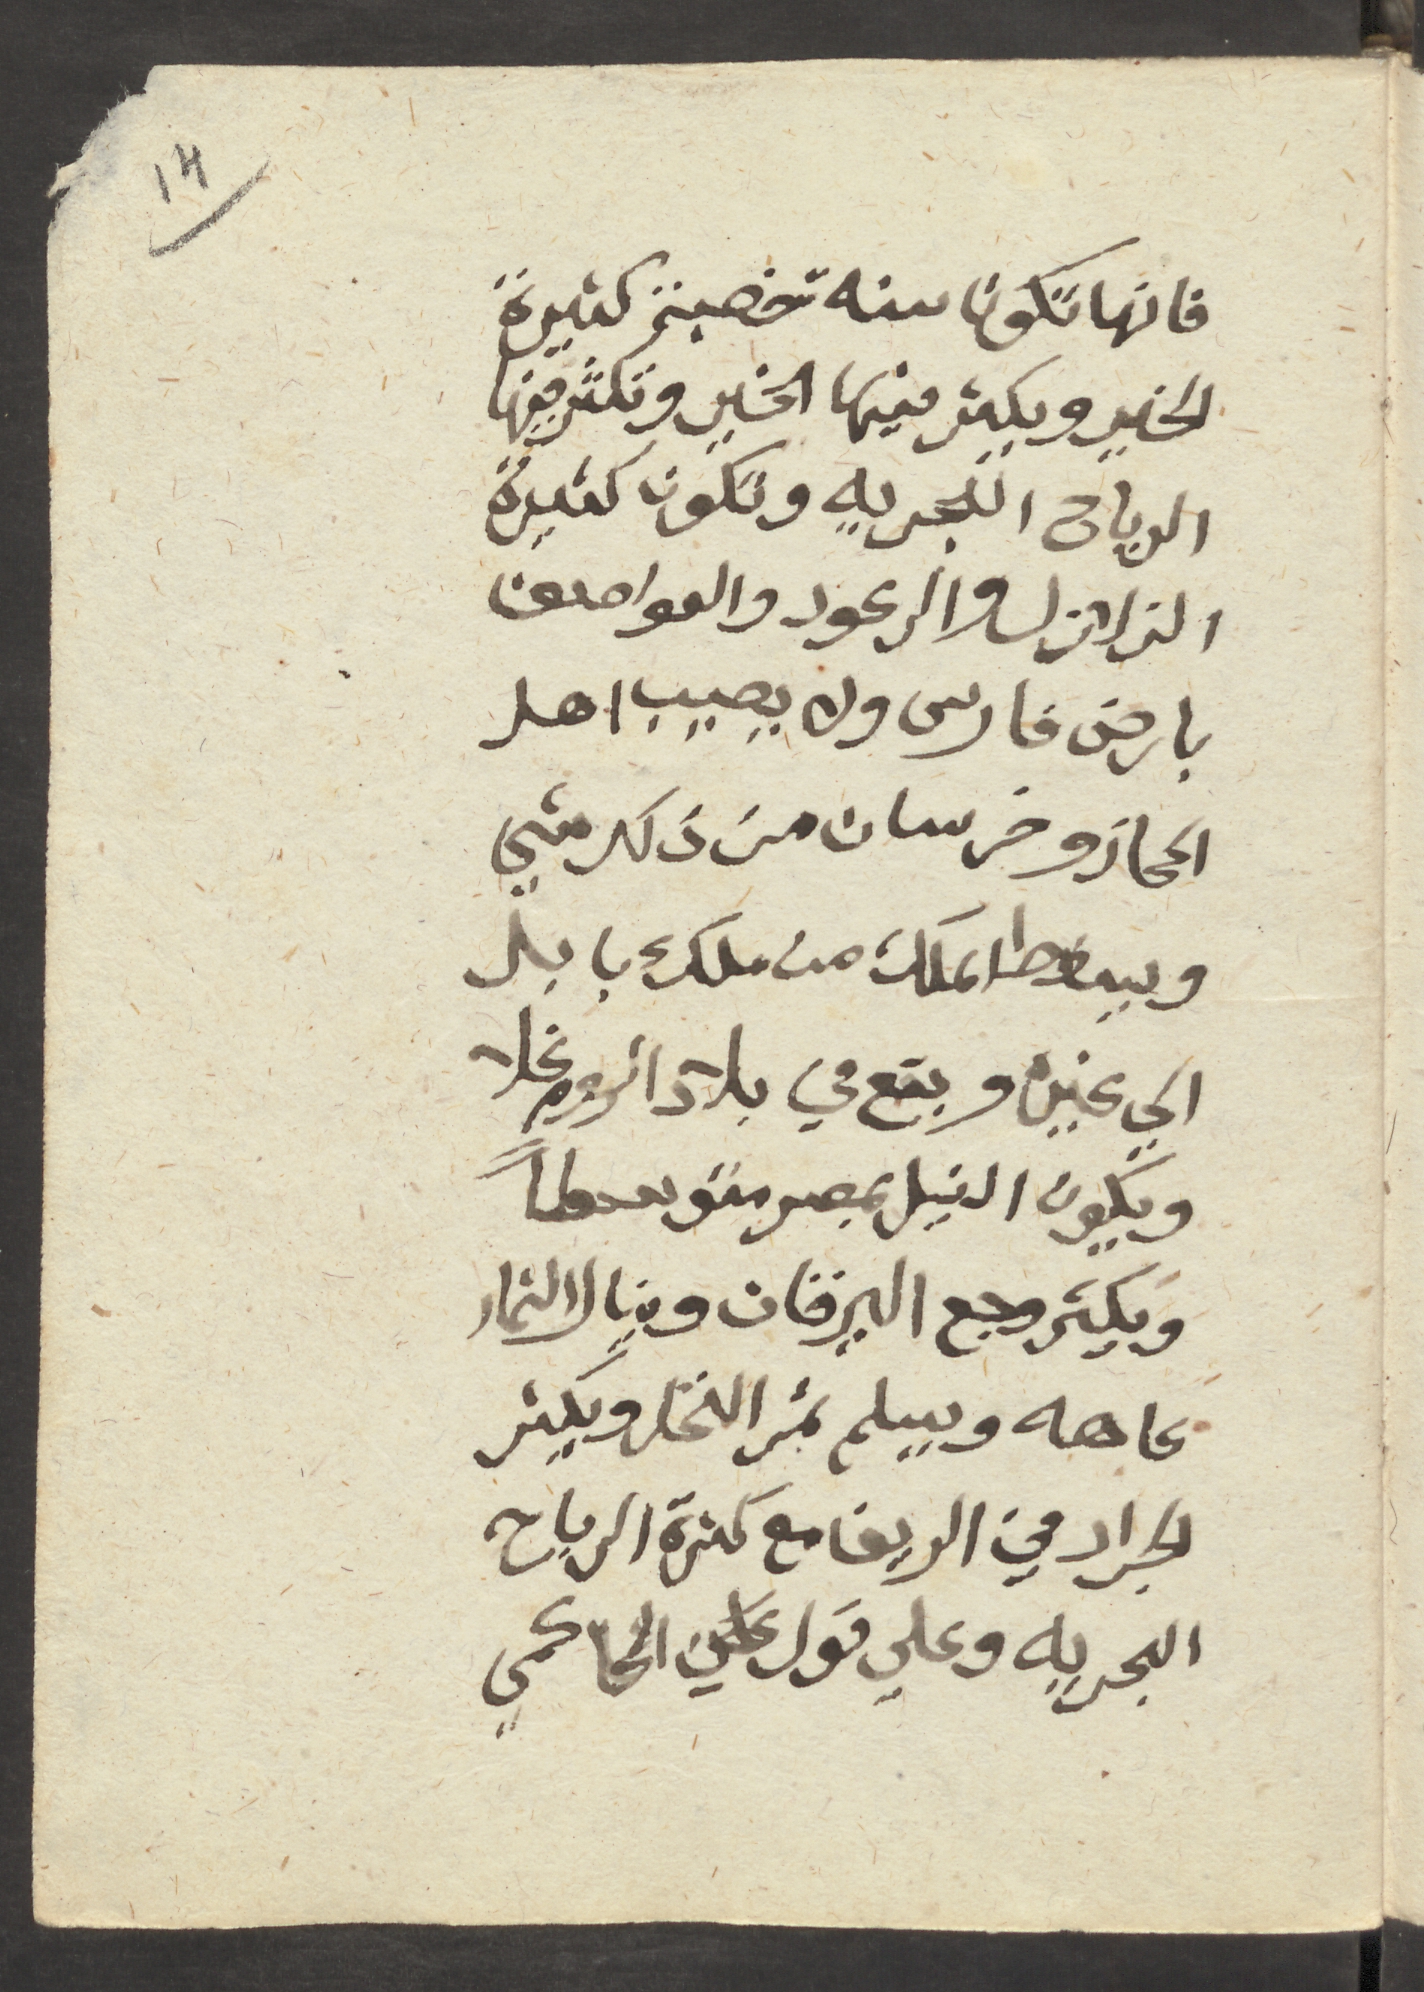 ١٣
فانها تكون سنه تخصبنز كثيرة
الخير ويكثر فيها الخير وتكثر فيها
الرياح البحريه وتكون كثيرة
الزلازل والرعود والصواعق
بارض فارس ولا يصيب اهل
الحجاز وخرسان من ذلك شي
الملك من ملك بابل
الي عنيره ويقع في بلاد الروم غلا
ويكون النيل بمصر متوسطاً
ويكثر وجع اليرقان وينال الثمار
عاهه ويسلم ثمر النخل ويكثر
الجراد في الريف مع كثرة الرياح
البحريه وعلي قول